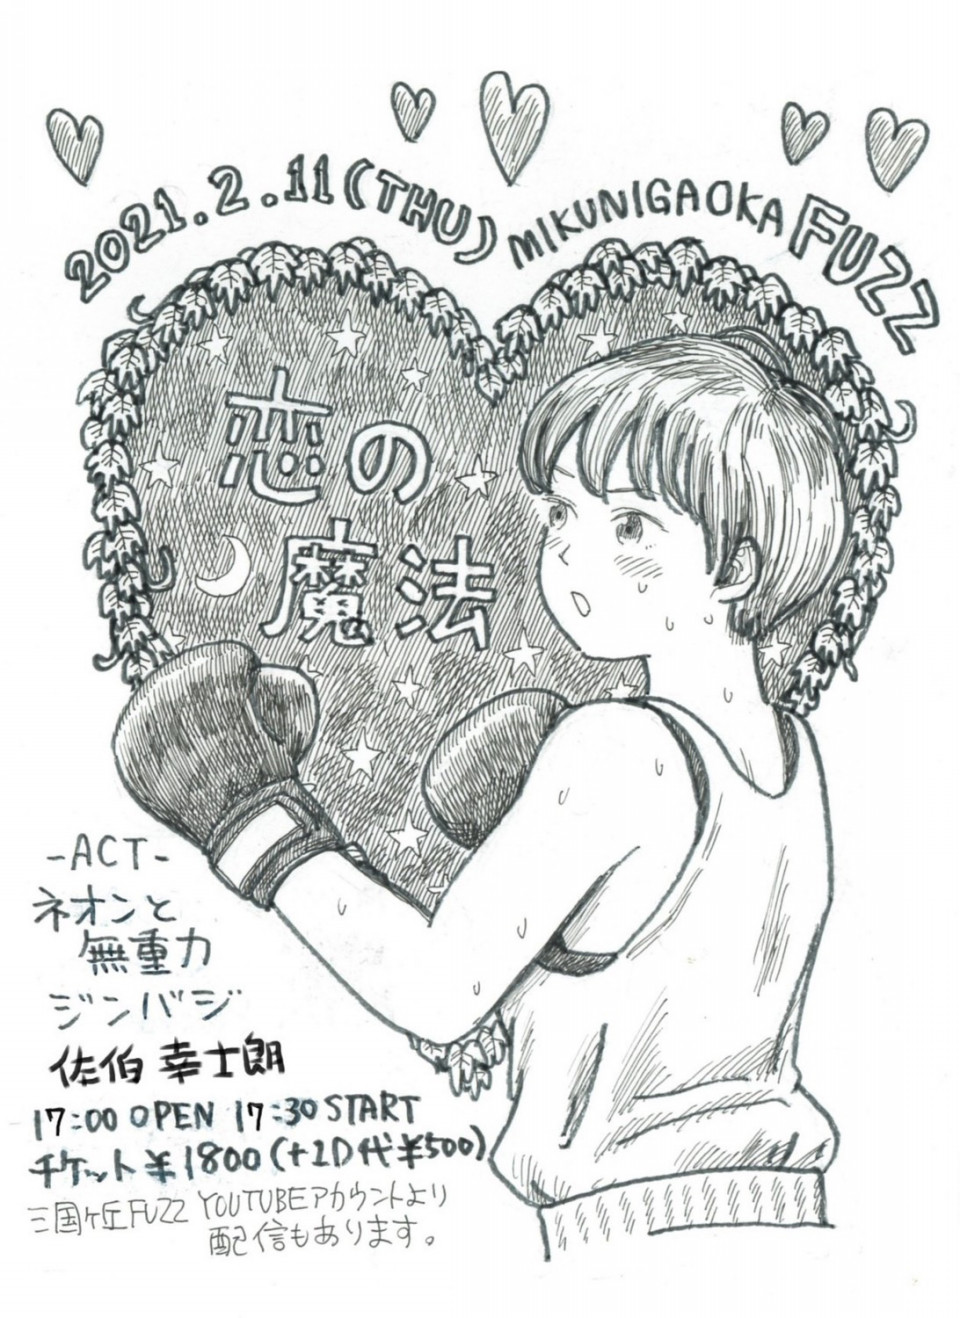 2021.2.11(THU) MIKUNIGAOKA FUZZ
恋の
魔法
-ACT-
ネオンと
無重力
ジンバジ
佐伯 幸士朗
17:00 OPEN 17:30 START
チケット ¥1800(+1D代¥500)
三国ヶ丘FUZZ YOUTUBEアカウントより
配信もあります。